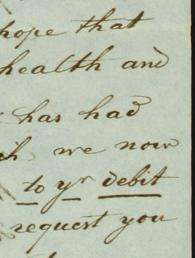 hope that
health and
has had
we now
to yr debit
request you